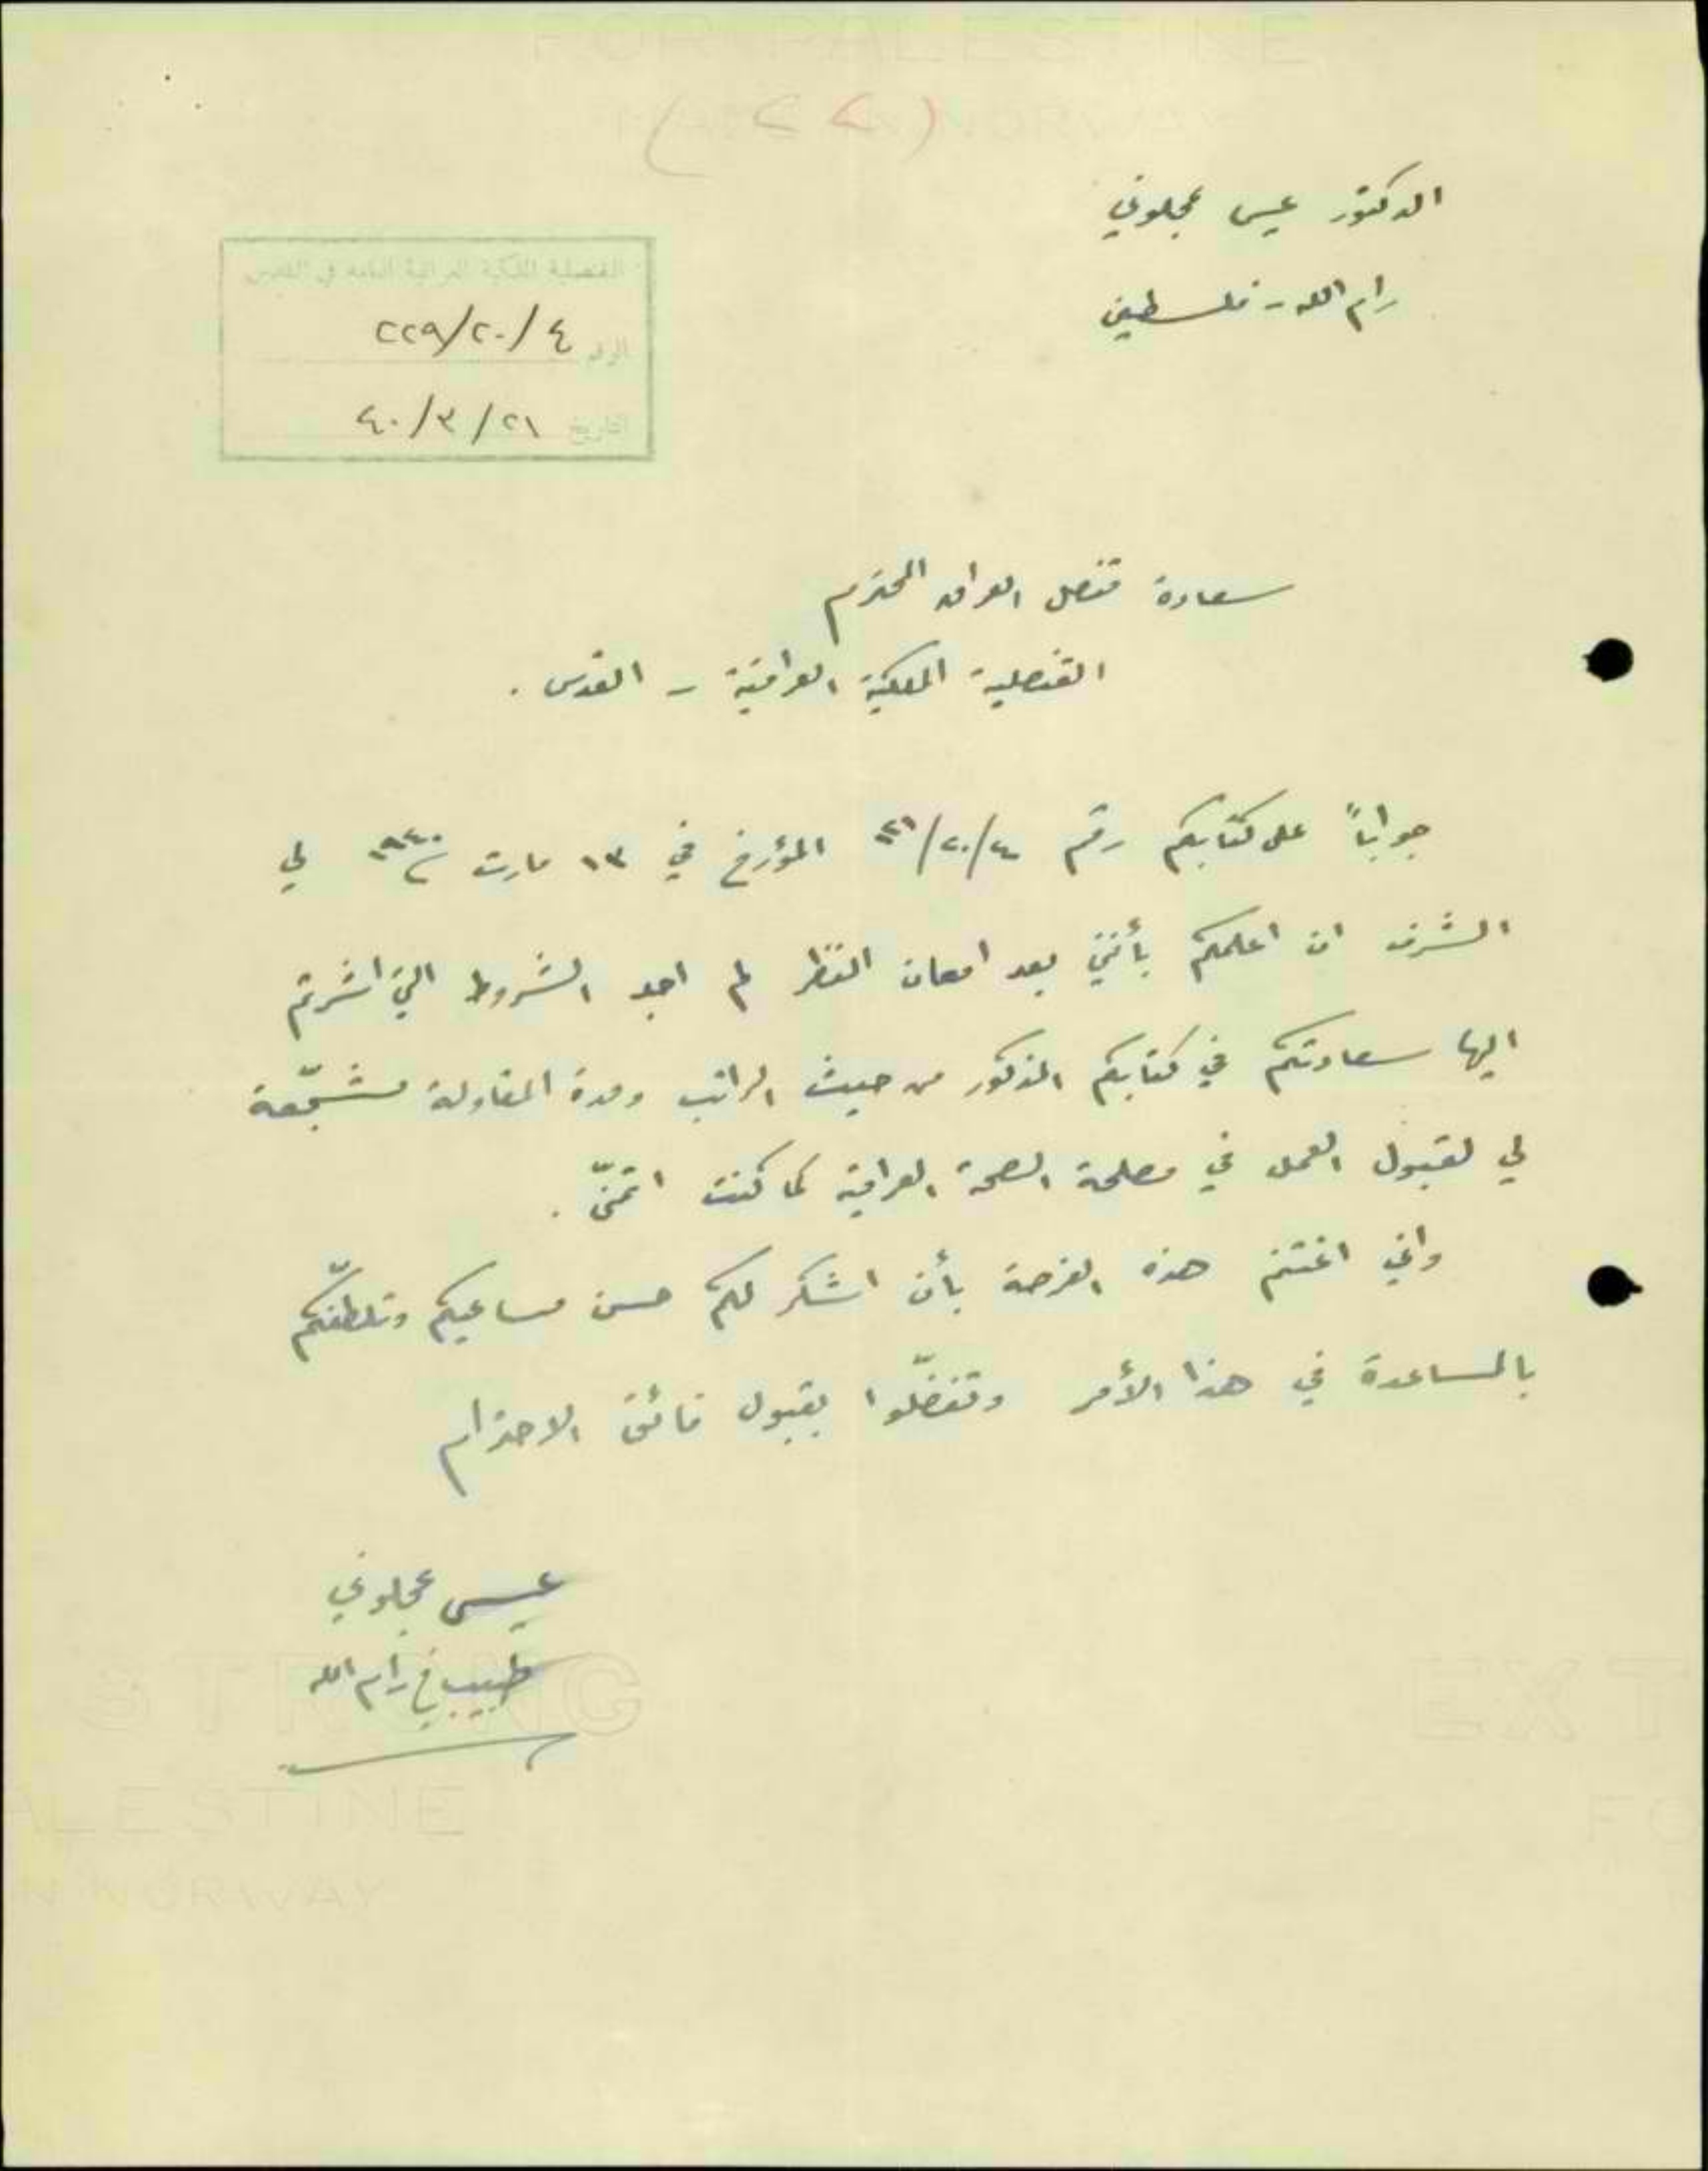 FOR PALESTINE
(٢٢) NORWAY
الدكتور عيسى عجلوني
رام الله - فلسطين
القنصلية الملكية العراقية العامة في القدس
الرقم ٤/٢٠/٢٢٩
التاريخ ٢١/٣/٤٠
سعادة قنصل العراق المحترم
القنصلية الملكية العراقية - القدس .
جواباً على كتابكم رقم المؤرخ في ١٣ مارت سنة ١٩٤٠ لي
الشرف ان اعلمكم بأنني بعد امعان النظر لم اجد الشروط التي اشرتم
اليها سعادتكم في كتابكم المذكور من حيث الراتب ومدة المقاولة مشجّعة
لي لقبول العمل في مصلحة الصحة العراقية كما كنت اتمنّى .
واني اغتنم هذه الفرصة بأن اشكر لكم حسن مساعيكم وتلطّفكم
بالمساعدة في هذا الأمر وتفضّلوا بقبول فائق الاحترام
عيسى عجلوني
طبيب في رام الله
STRONG EXT
ALESTINE FO
IN NORWAY